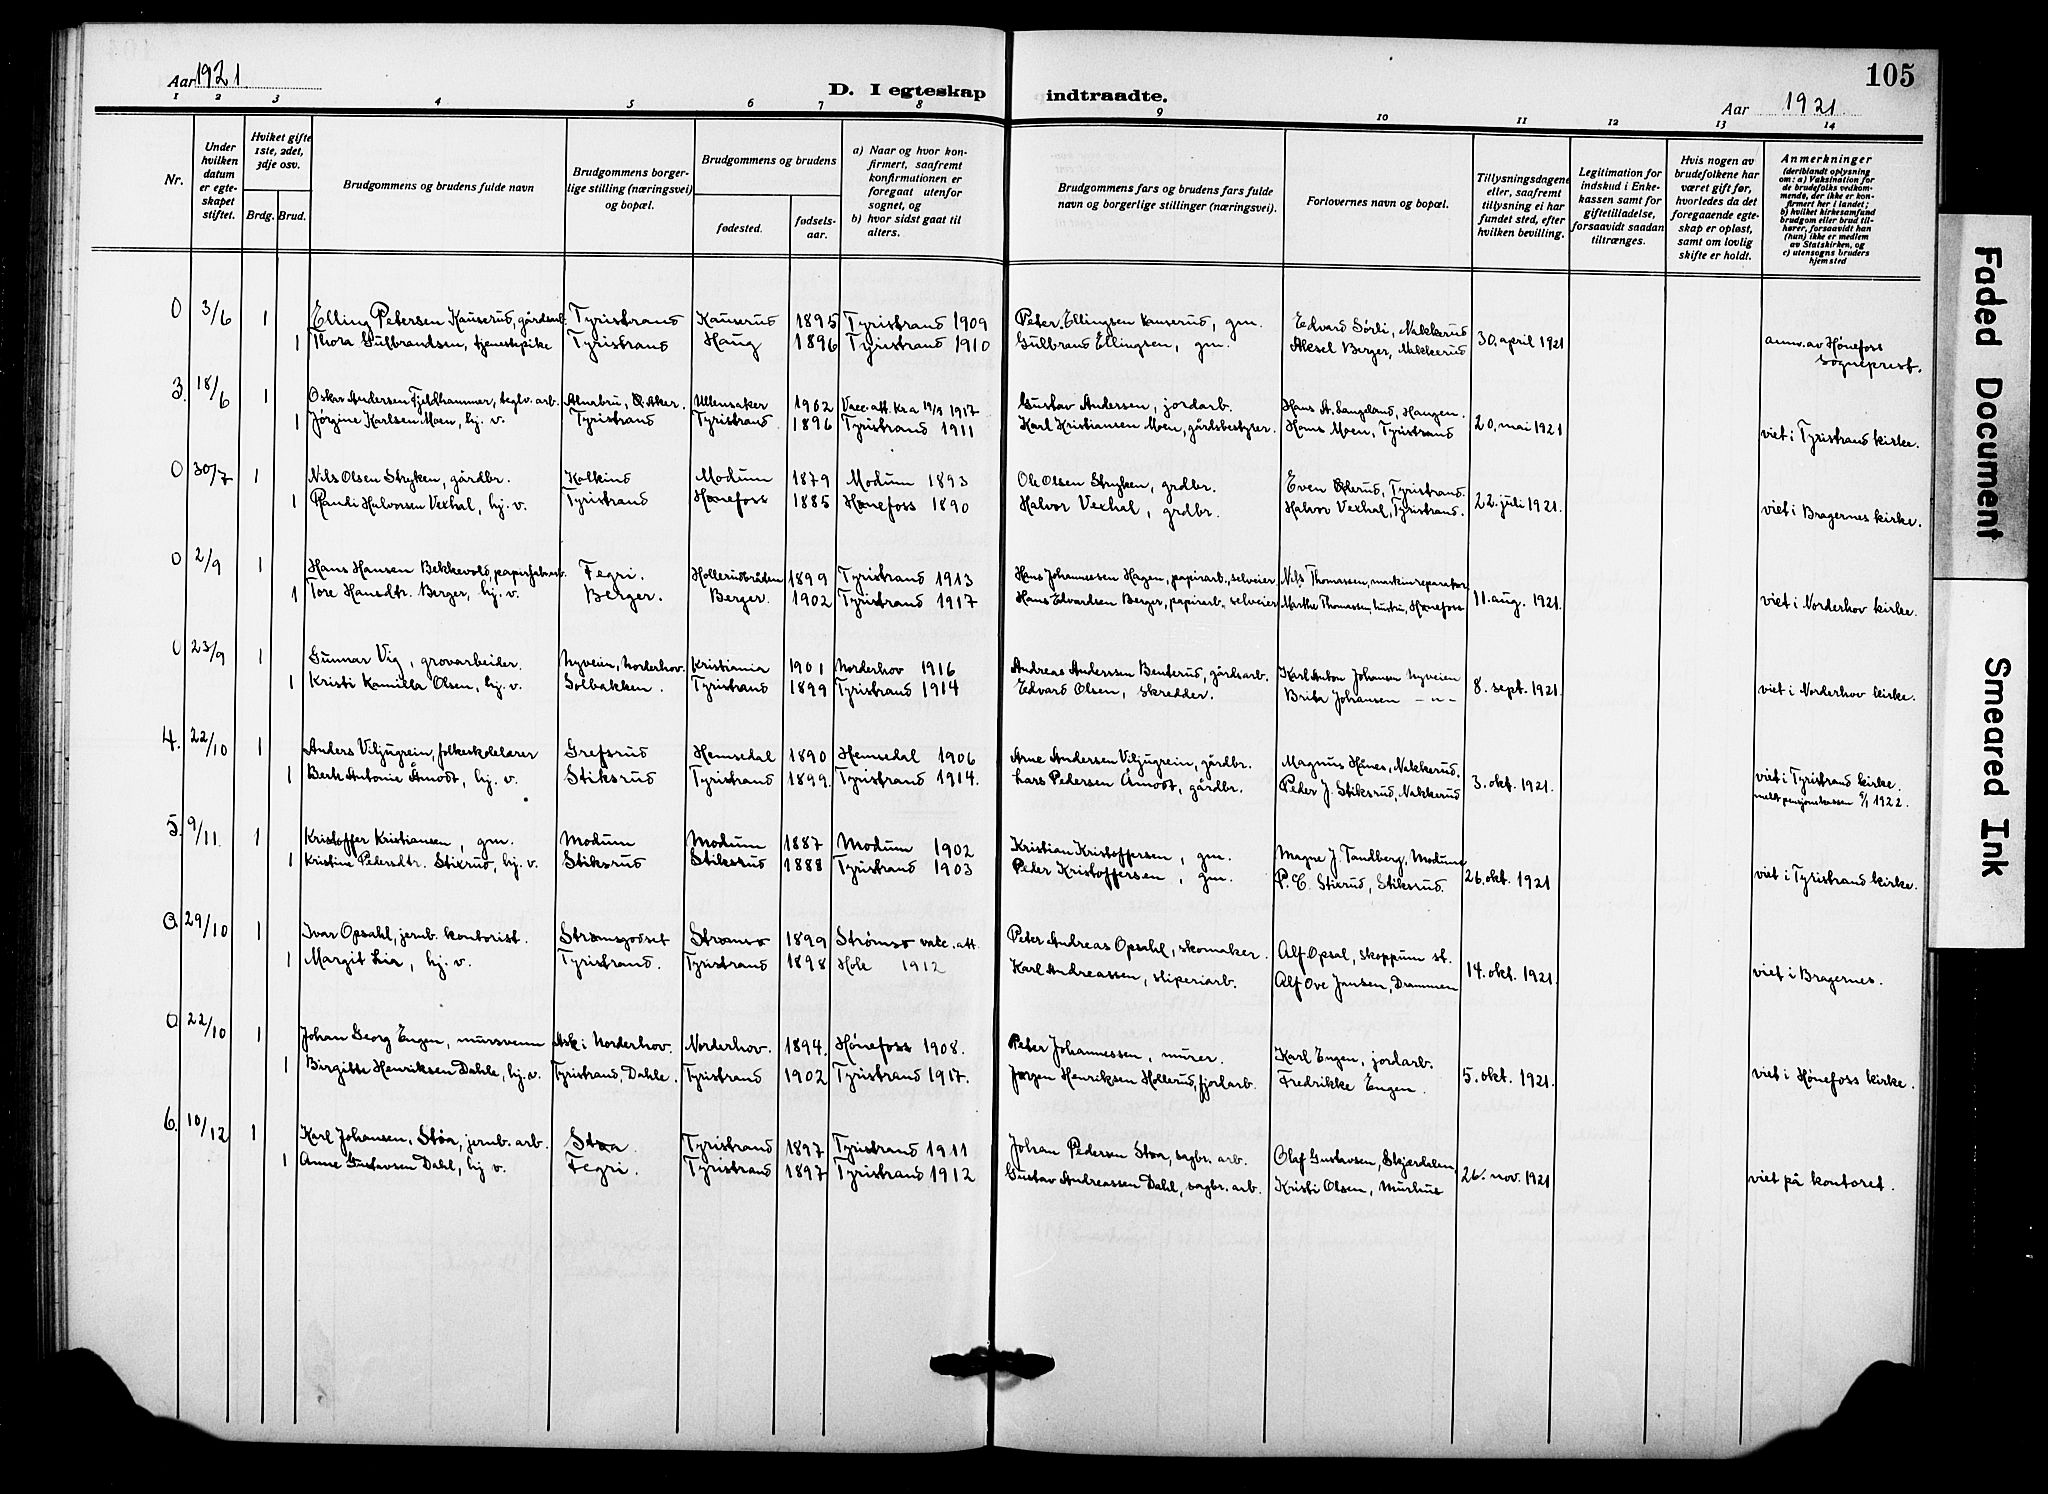 105
Aar 1921
D. I egteskap indtraadte.
Aar 1921
1 2 3 4 5 6 7 8 9 10 11 12 13 14
Nr.
Under hvilken datum er egteskapet stiftet.
Hviket gifte 1ste, 2det, 3dje osv.
Brdg. Brud.
Brudgommens og brudens fulde navn
Brudgommens borgerlige stilling (næringsvei) og bopæl.
Brudgommens og brudens
fødested. fødselsaar.
a) Naar og hvor konfirmert, saafremt konfirmationen er foregaat utenfor sognet, og
b) hvor sidst gaat til alters.
Brudgommens fars og brudens fars fulde navn og borgerlige stillinger (næringsvei).
Forlovernes navn og bopæl.
Tillysningsdagene eller, saafremt tillysning ei har fundet sted, efter hvilken bevilling.
Legitimation for indskud i Enkekassen samt for giftetilladelse, forsaavidt saadan tiltrænges.
Hvis nogen av brudefolkene har været gift før, hvorledes da det foregaaende egteskap er opløst, samt om lovlig skifte er holdt.
Anmerkninger (deriblandt oplysning om: a) Vaksination for de brudefolks vedkommende, der ikke er konfirmert her i landet; b) hvilket kirkesamfund brudgom eller brud tilhører, forsaavidt han (hun) ikke er medlem av Statskirken, og c) utensogns bruders hjemsted
0 3/6 1 Elling Petersen Kauserud, gårdsarb. Tyristrand Kauserud 1895 Tyristrand 1909 Peter Ellingsen Kauserud, gm. Edvard Sørli, Nakkerud
1 Thora Gulbrandsen, tjenestepike Tyristrand Haug 1896 Tyristrand 1910 Gulbrand Ellingsen, gm. Aksel Berger, Nakkerud 30. april 1921 anm. av Hønefoss sogneprest.
3. 18/6 1 Oskar Andersen Fjeldhammer, teglv. arb. Alnabru, Ø. Aker. Ullensaker 1902 Vacc. att. Kr.a 19/9 1917 Gustav Andersen, jordarb. Hans A. Langeland, Haugen.
1 Jørgine Karlsen Moen, hj. v. Tyristrand Tyristrand 1896 Tyristrand 1911 Karl Kristiansen Moen, gårdsbestyrer. Hans Moen, Tyristrand 20. mai 1921 viet i Tyristrand kirke.
0 30/7 1 Nils Olsen Stryken, gårdbr. Kolkind Modum 1879 Modum 1893 Ole Olsen Stryken, grdbr. Even Ølerud, Tyristrand.
1 Randi Halvorsen Vexhal, hj. v. Tyristrand Hønefoss 1885 Hønefoss 1890 Halvor Vexhal, grdbr. Halvor Vexhal, Tyristrand. 22. juli 1921. viet i Bragernes kirke.
0 2/9 1 Hans Hansen Bekkevold, papirfabrarb. Fegri. Hollerudbråten 1899 Tyristrand 1913 Hans Johannessen Hagen, papirarb., selveier Nils Thomassen, maskinreparatør
1 Tore Hansdtr. Berger, hj. v. Berger. Berger. 1902 Tyristrand 1917 Hans Edvardsen Berger, papirarb., selveier Marthe Thomassen, hustru, Hønefoss 11. aug. 1921. viet i Norderhov kirke.
0 23/9 1 Gunnar Vig, grovarbeider. Nyveien, Norderhov. Kristiania 1901 Norderhov 1916 Andreas Anderssen Benterud, gårdsarb. Karl Anton Johansen Nyveien
1 Kristi Kamilla Olsen, hj. v. Solbakken. Tyristrand 1899 Tyristrand 1914 Edvard Olsen, skredder. Brita Johansen -"- 8. sept. 1921. viet i Norderhov kirke.
4. 22/10 1 Anders Viljugrein, folkeskolelærer Grefsrud Hemsedal 1890 Hemsedal 1906 Arne Andersen Viljugrein, gårdbr. Magnus Hånes, Nakkerud.
1 Berte Antonie Åmodt, hj. v. Stiksrud Tyristrand 1899. Tyristrand 1914. Lars Pedersen Åmodt, gårdbr. Peder J. Stiksrud, Nakkerud 3. okt. 1921. viet i Tyristrand kirke.
meldt pensjonskassen 9/1 1922.
5. 9/11. 1 Kristoffer Kristiansen, gm. Modum Modum 1887 Modum 1902 Kristian Kristoffersen, gm. Magne J. Tandberg, Modum
1 Kristine Pedersdtr. Stixrud, hj. v. Stiksrud Stiksrud 1888 Tyristrand 1903 Peder Kristoffersen, gm. P. C. Stixrud, Stiksrud. 26. okt. 1921 viet i Tyristrand kirke.
0. 29/10 1 Ivar Opsahl, jernb. kontorist. Strømsgodset Strømsø 1899 Strømsø vakc. att. Peter Andreas Opsahl, skomaker. Alf Opsal, skoppum st.
1 Margit Lia, hj. v. Tyristrand. Tyristrand 1898 Hole 1912 Karl Andreassen, sliperiarb. Alf Ove Jansen, Drammen 14. okt. 1921. viet i Bragernes.
0 22/10 1 Johan Georg Engen, mursvenn Ask i Norderhov. Norderhov. 1894. Hønefoss 1908. Peter Johannessen, murer. Karl Engen, jordarb.
1 Birgitte Henriksen Dahle, hj. v. Tyristrand, Dahle. Tyristrand 1902 Tyristrand 1917. Jørgen Henriksen Hollerud, jordarb. Fredrikke Engen. 5. okt. 1921. viet i Hønefoss kirke.
6. 10/12 1 Karl Johansen Støa, jernb. arb. Støa Tyristrand 1897 Tyristrand 1911 Johan Pedersen Støa, sagbr. arb. Olaf Gustavsen, Skjærdalen,
1 Anne Gustavsen Dahl, hj v. Fegri. Tyristrand 1897 Tyristrand 1912 Gustav Andreassen Dahl, sagbr. arb. Kristi Olsen, Murhus 26. nov. 1921 viet på kontoret.
Faded Document
Smeared Ink